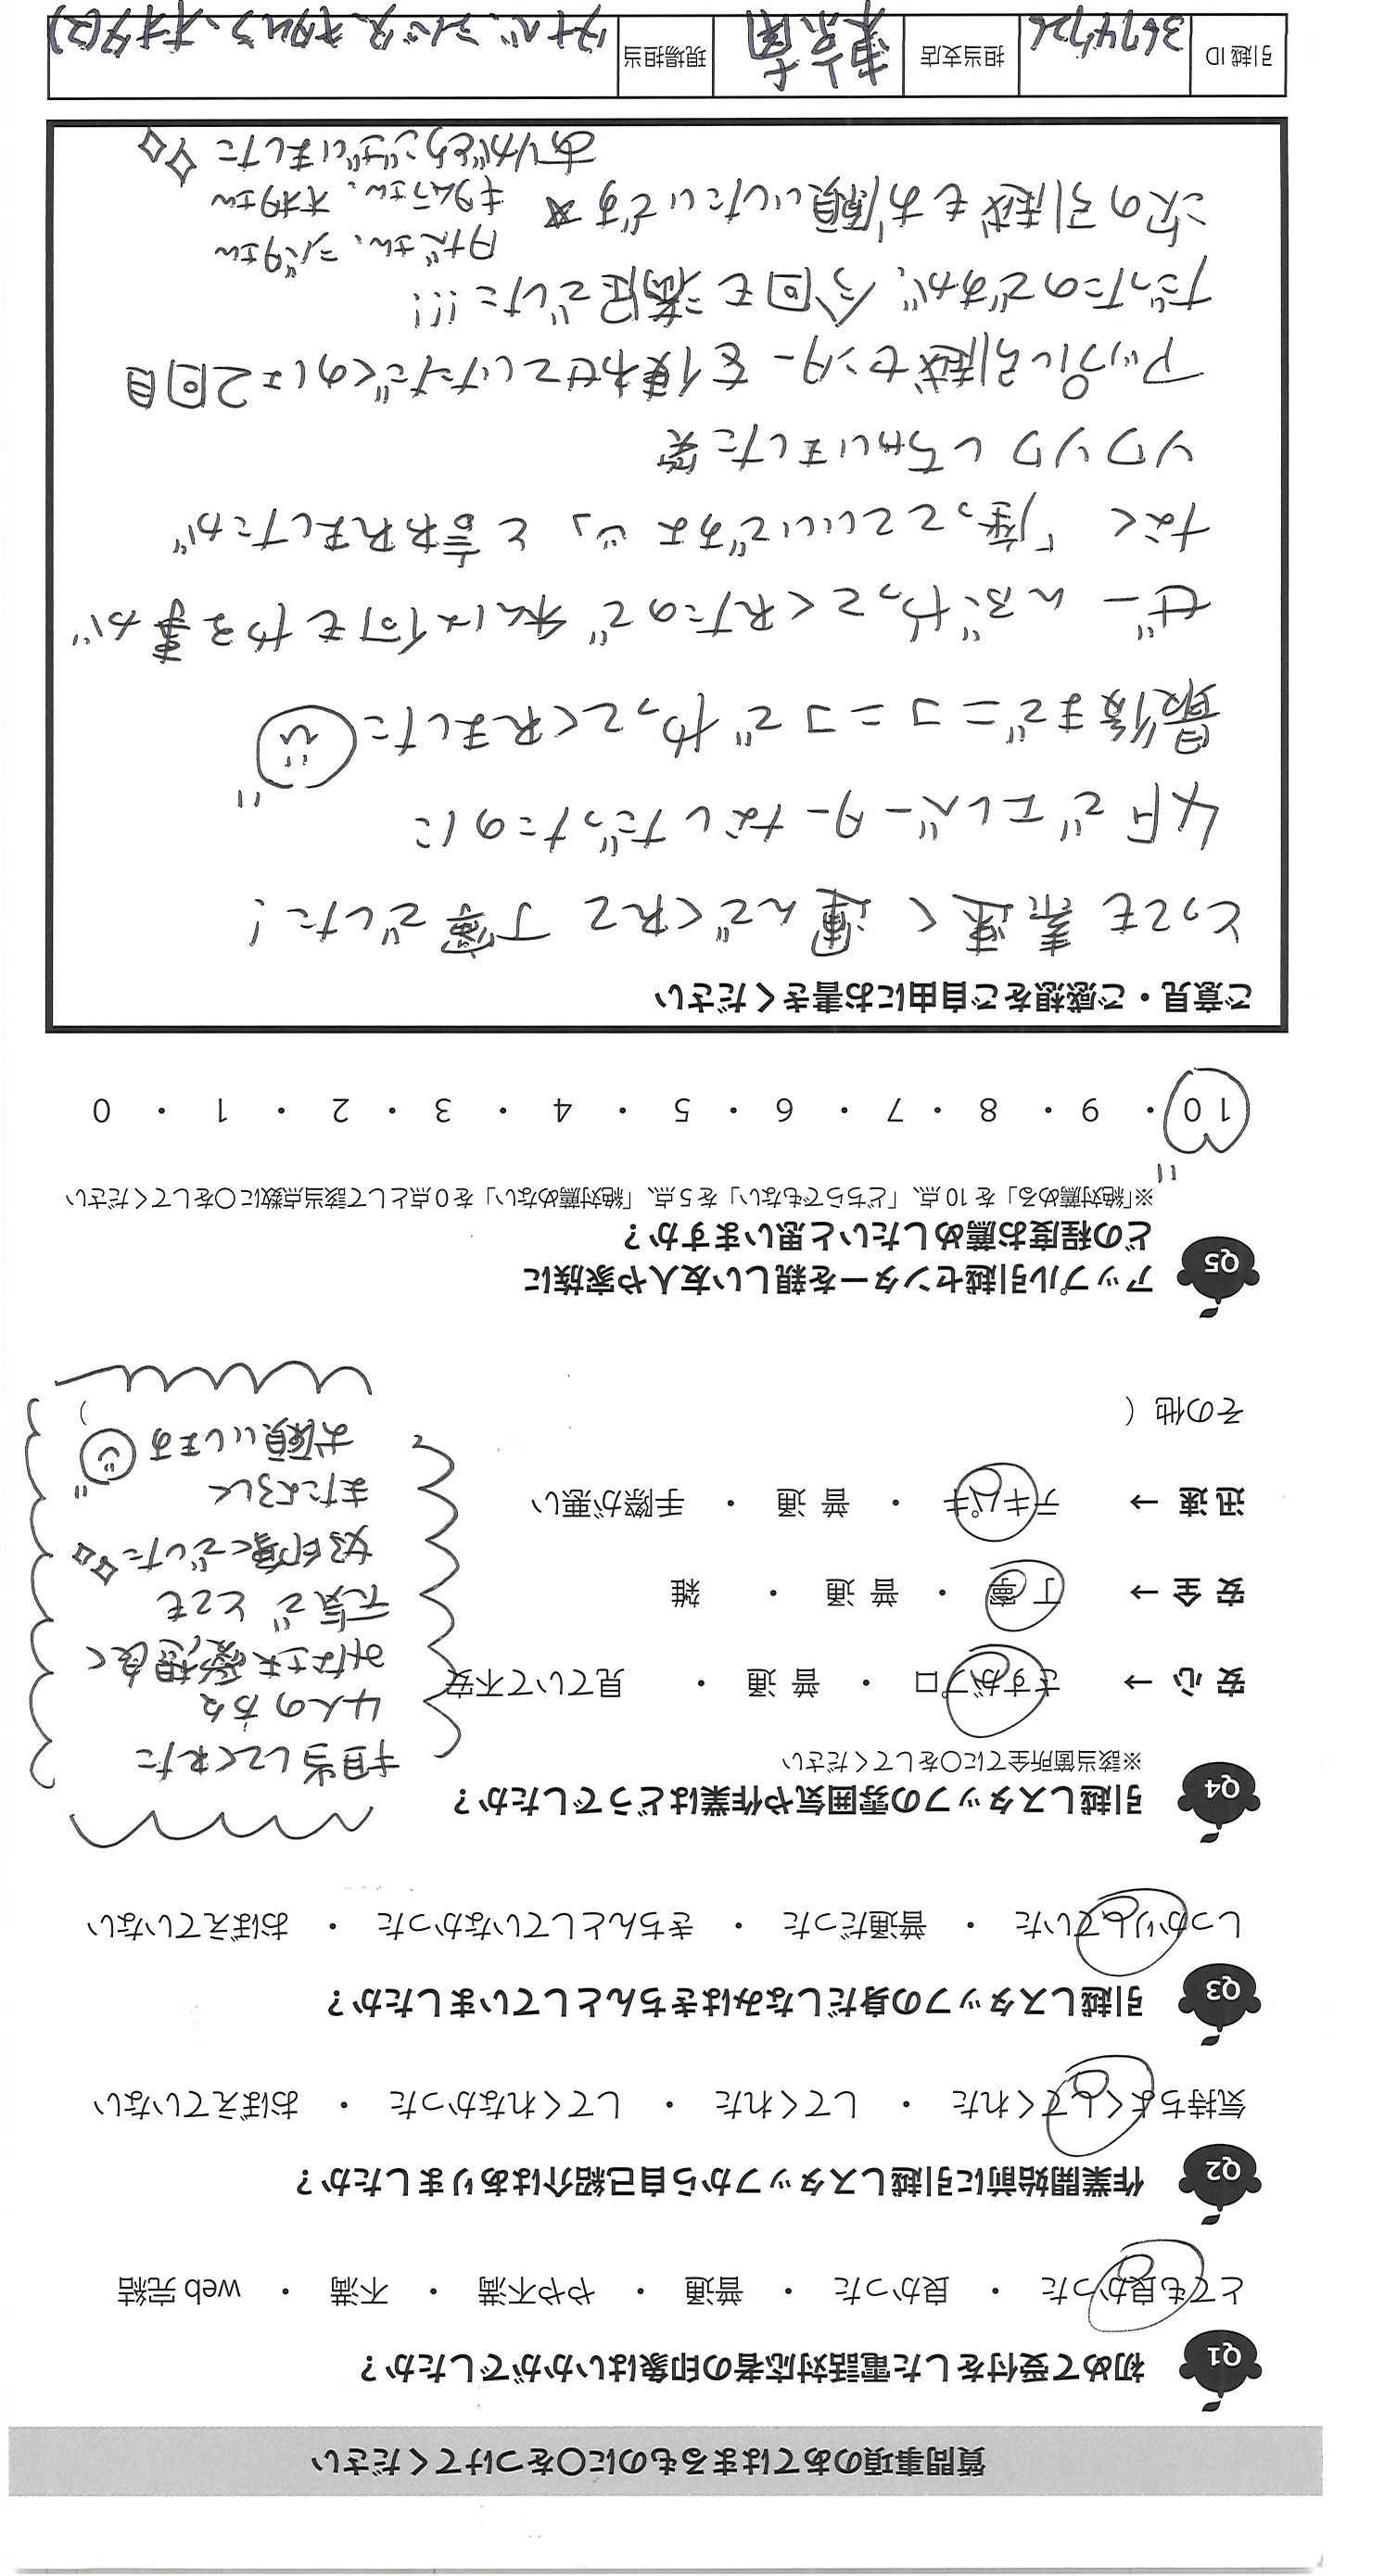 質問事項のあてはまるものに〇をつけてください
Q1 初めて受付をした電話対応者の印象はいかがでしたか？
とても良かった ・ 良かった ・ 普通 ・ やや不満 ・ 不満 ・ web 完結
Q2 作業開始前に引越しスタッフから自己紹介はありましたか？
気持ちよくしてくれた ・ してくれた ・ してくれなかった ・ おぼえていない
Q3 引越しスタッフの身だしなみはきちんとしていましたか？
しっかりしていた ・ 普通だった ・ きちんとしていなかった ・ おぼえていない
Q4 引越しスタッフの雰囲気や作業はどうでしたか？
※該当箇所全てに〇をしてください
安 心 → さすがプロ ・ 普 通 ・ 見ていて不安
安 全 → 丁 寧 ・ 普 通 ・ 雑
迅 速 → テキパキ ・ 普 通 ・ 手際が悪い
その他（ ）
担当してくれた
4人の方々
みなさま愛想良く
元気で とても
好印象でした
またよろしく
お願いします
Q5 アップル引越センターを親しい友人や家族に
どの程度お薦めしたいと思いますか？
※「絶対薦める」を 10 点、「どちらでもない」を 5 点、「絶対薦めない」を 0 点として該当点数に〇をしてください
10 ・ 9 ・ 8 ・ 7 ・ 6 ・ 5 ・ 4 ・ 3 ・ 2 ・ 1 ・ 0
ご意見・ご感想をご自由にお書きください
とっても 素速く 運んでくれて 丁寧でした！
4Fで エレベーターなしだったのに
最後まで ニコニコで やってくれました
ぜーんぶ やってくれたので 私は何もやる事が
なく 「座ってていいですよ」 と 言われましたが
ソワソワ しちゃいました 笑
アップル引越センターを使わせていただくのは 2回目
だったのですが、今回も満足でした!!!
シバタさん
次の引越もお願いしたいです☆ キタムラさん、オオタさん
ありがとうございました
引越 ID 3674726 担当支店 東京南 現場担当